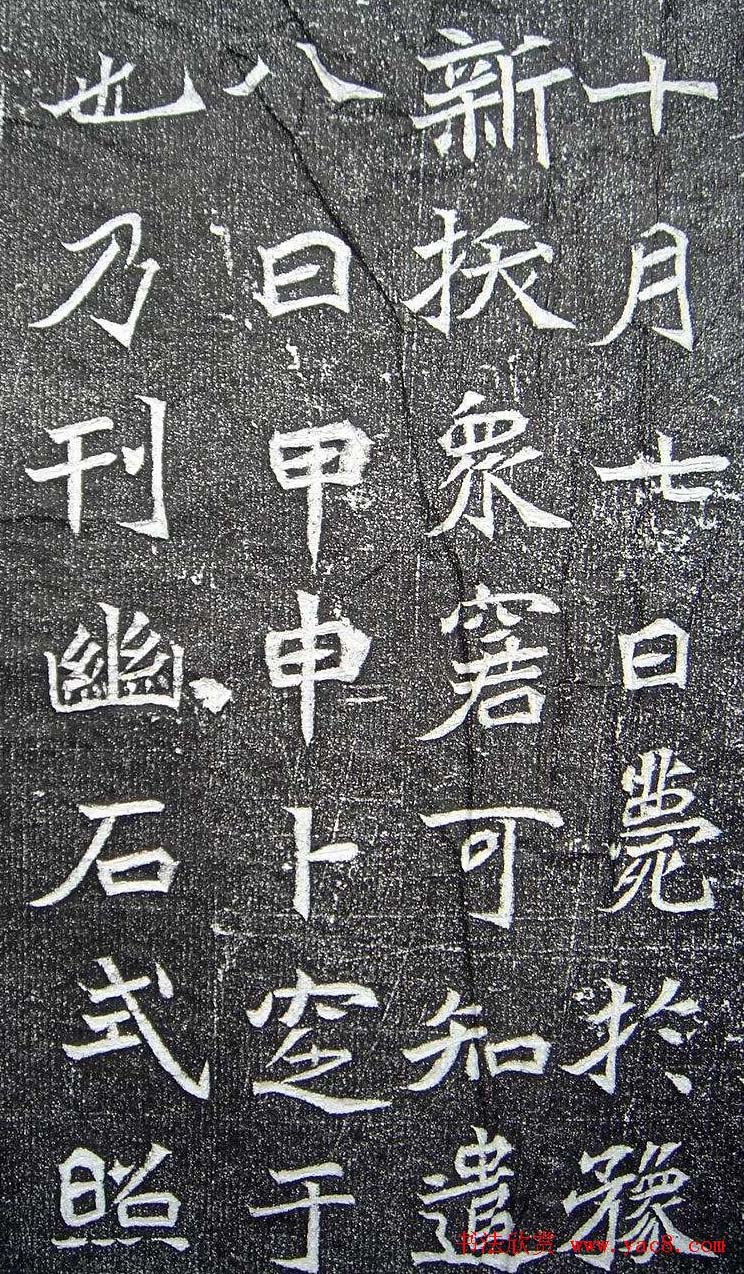 十月七日薨於豫
新衆窘可知遣
八日甲申卜窆于
也乃刊幽石式照
书法欣赏 www.yac8.com